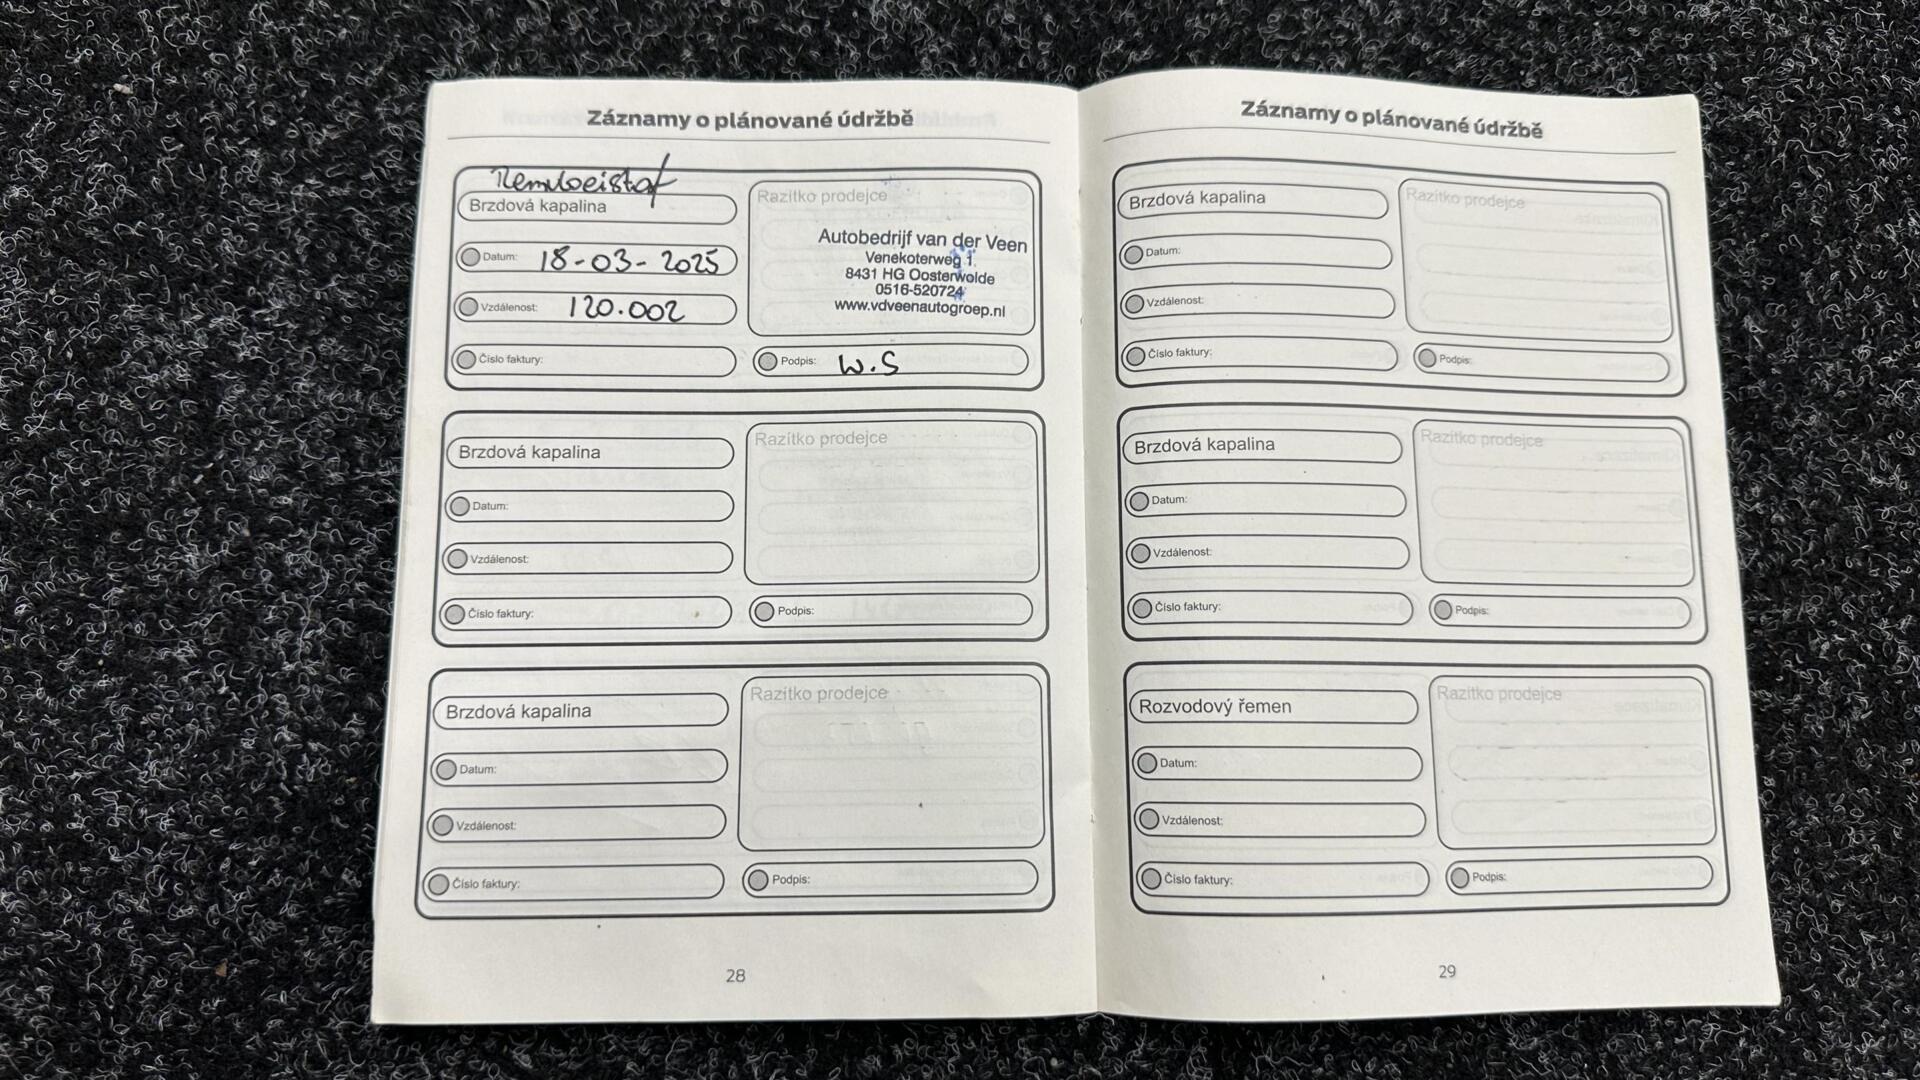 Záznamy o plánované údržbě
Remvloeistof
Brzdová kapalina
Datum: 18-03-2025
Vzdálenost: 120.002
Číslo faktury:
Razítko prodejce
Autobedrijf van der Veen
Venekoterweg 1
8431 HG Oosterwolde
0516-520724
www.vdveenautogroep.nl
Podpis: W.S
Brzdová kapalina
Datum:
Vzdálenost:
Číslo faktury:
Razítko prodejce
Podpis:
Brzdová kapalina
Datum:
Vzdálenost:
Číslo faktury:
Razítko prodejce
Podpis:
28
Záznamy o plánované údržbě
Brzdová kapalina
Datum:
Vzdálenost:
Číslo faktury:
Razítko prodejce
Podpis:
Brzdová kapalina
Datum:
Vzdálenost:
Číslo faktury:
Razítko prodejce
Podpis:
Rozvodový řemen
Datum:
Vzdálenost:
Číslo faktury:
Razítko prodejce
Podpis:
29